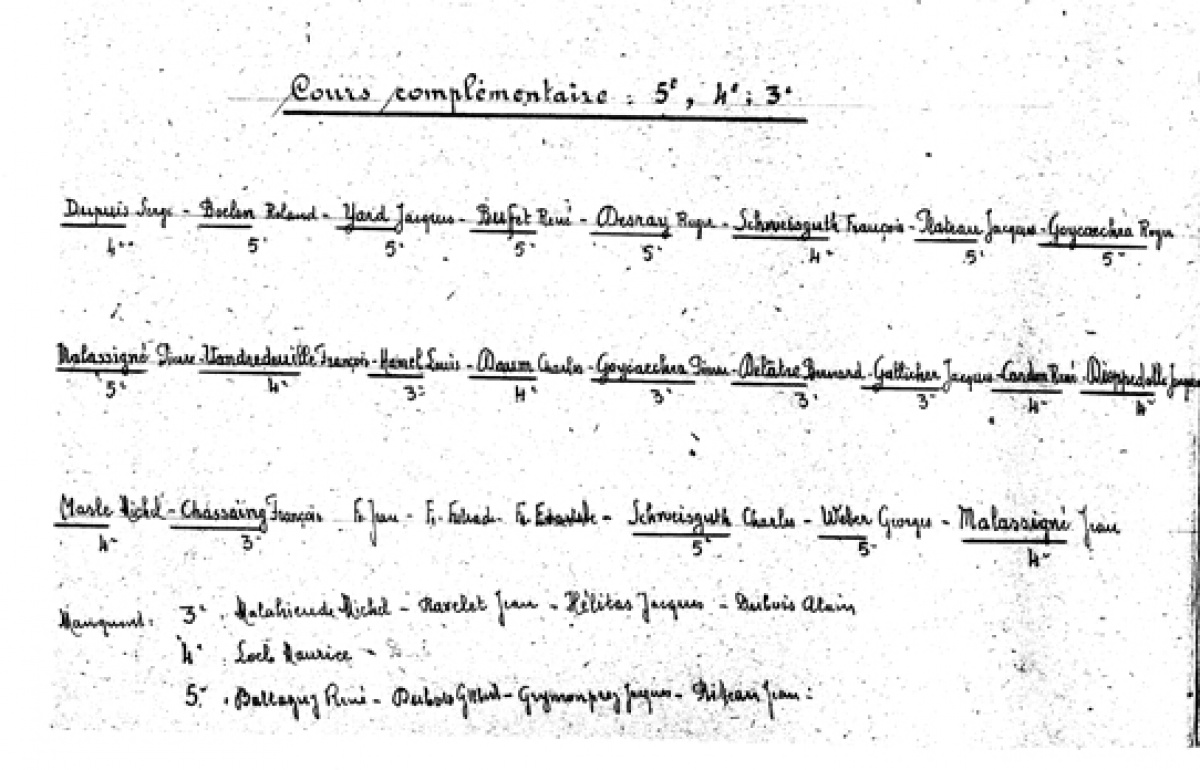 Cours complémentaire : 5e, 4e : 3e
Dupuis Serge - Boclon Roland - Yard Jacques - Bufet René - Desray Roger - Schweisguth François - Plateau Jacques - Goycoechea Roger
4e 5e 5e 5e 5e 4e 5e 5e
Malassigné Pierre - Vandredeuille François - Hamel Louis - Daum Charles - Goycoechea Pierre - Delâtre Bernard - Jacques - Cardon René
5e 4e 3e 4e 3e 3e 3e 4e 4e
Masle Michel - Chassaing François F. Jean - F. - F. - Schweisguth Charles - Weber Georges - Malassigné Jean
4e 3e 5e 5e 4e
Manquent : 3e . Michel - Ravelet Jean - Hélitas Jacques - Dubois Alain
4e . Maurice -
5e . René - Dubois - Grymonprez Jacques - Jean :